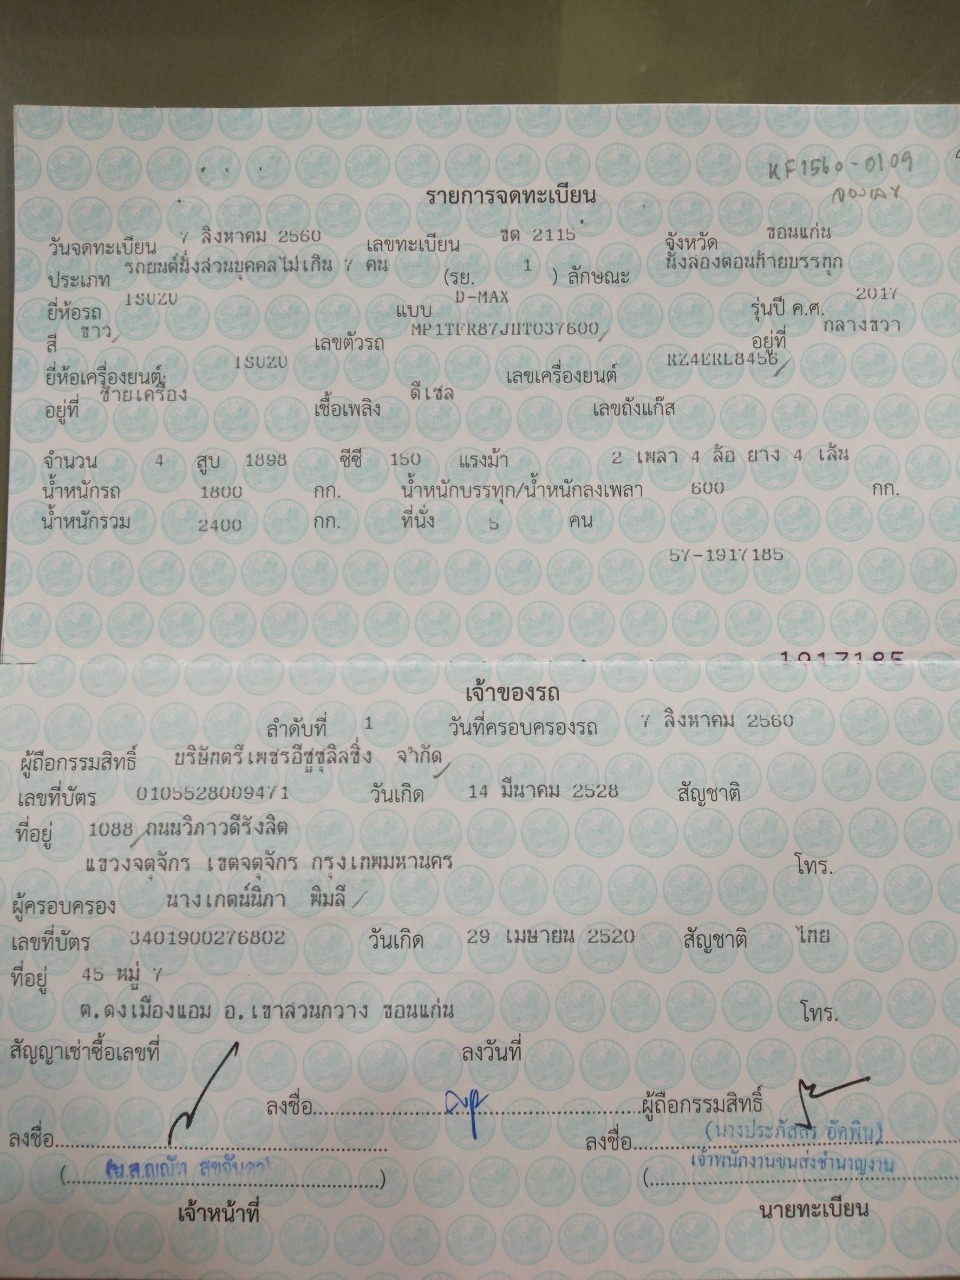 KF1560-0109
รายการจดทะเบียน
วันจดทะเบียน 7 สิงหาคม 2560 เลขทะเบียน ขต 2115 จังหวัด ขอนแก่น
ประเภท รถยนต์นั่งส่วนบุคคลไม่เกิน 7 คน (รย. 1 ) ลักษณะ นั่งสองตอนท้ายบรรทุก
ยี่ห้อรถ ISUZU แบบ D-MAX รุ่นปี ค.ศ. 2017
สี ขาว เลขตัวรถ MP1TFR87JHT037600 อยู่ที่ กลางขวา
ยี่ห้อเครื่องยนต์ ISUZU เลขเครื่องยนต์ RZ4ERL8456
อยู่ที่ ซ้ายเครื่อง เชื้อเพลิง ดีเซล เลขถังแก๊ส
จำนวน 4 สูบ 1898 ซีซี 150 แรงม้า 2 เพลา 4 ล้อ ยาง 4 เส้น
น้ำหนักรถ 1800 กก. น้ำหนักบรรทุก/น้ำหนักลงเพลา 600 กก.
น้ำหนักรวม 2400 กก. ที่นั่ง 5 คน
57-1917185
1917185
เจ้าของรถ
ลำดับที่ 1 วันที่ครอบครองรถ 7 สิงหาคม 2560
ผู้ถือกรรมสิทธิ์ บริษัทตรีเพชรอีซูซุลิสซิ่ง จำกัด
เลขที่บัตร 0105528009471 วันเกิด 14 มีนาคม 2528 สัญชาติ
ที่อยู่ 1088 ถนนวิภาวดีรังสิต
แขวงจตุจักร เขตจตุจักร กรุงเทพมหานคร โทร.
ผู้ครอบครอง นางเกตน์นิภา พิมลี
เลขที่บัตร 3401900276802 วันเกิด 29 เมษายน 2520 สัญชาติ ไทย
ที่อยู่ 45 หมู่ 7
ต.ดงเมืองแอม อ.เขาสวนกวาง ขอนแก่น โทร.
สัญญาเช่าซื้อเลขที่ ลงวันที่
ลงชื่อ ผู้ถือกรรมสิทธิ์
ลงชื่อ ลงชื่อ (นางประภัสสร อัคพิน)
เจ้าพนักงานขนส่งชำนาญงาน
เจ้าหน้าที่ นายทะเบียน